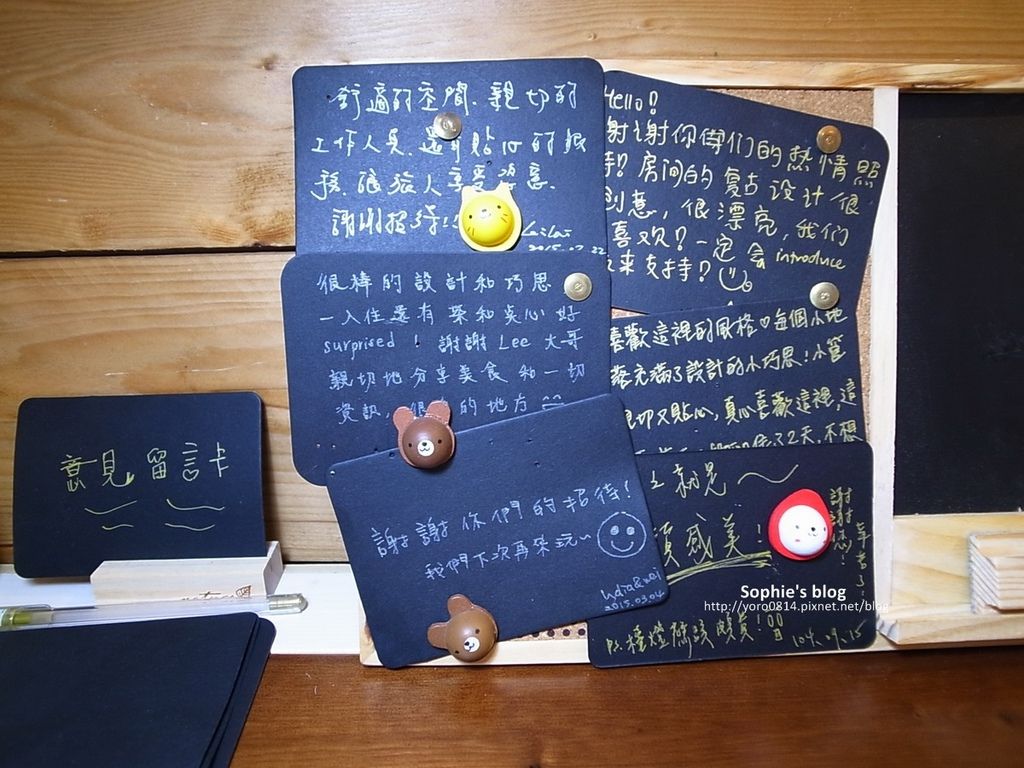 舒適的空間、親切的
工作人員、還有貼心的服
務,讓旅人享受愜意.
謝謝招待!!
Lailai
2015.02.22
Hello!
謝谢你們的热情照
待! 房间的复古设计很
创意, 很漂亮, 我们
喜欢! 一定会 introduce
来支持!
很棒的設計和巧思
一入住還有茶和点心好
surprised ! 謝謝 Lee 大哥
親切地分享美食和一切
資訊, 的地方
喜歡這裡的風格♡每個小地
充滿了設計的小巧思!小管
切又貼心,真心喜歡這裡,這
住了2天,不想
謝謝你們的招待!
我們下次再來玩~
Lydia & wei
2015.03.04
就是~
感美!
謝謝您!
辛苦了
意見留言卡
Sophie's blog
http://yoro0814.pixnet.net/blog